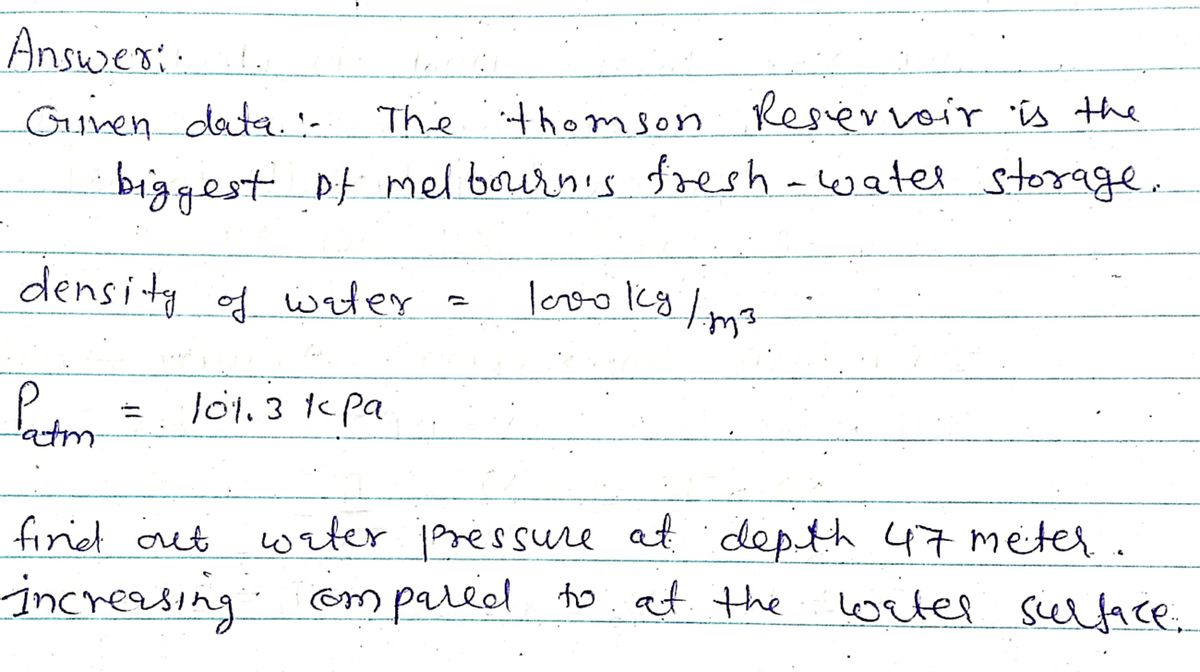 Answer:
Given data :- The thomson Reservoir is the
biggest of melbourn's fresh-water storage.
density of water = 1000 kg/m³
Patm = 101.3 kpa
find out water pressure at depth 47 meter.
increasing compared to at the water surface.